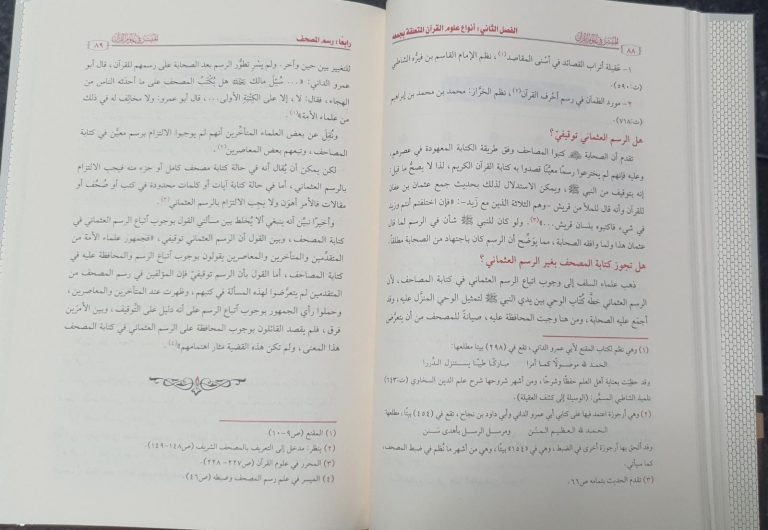 ٨٨
الفصل الثاني: أنواع علوم القرآن المتعلقة بجمعه
١- عَقيلة أتراب القصائد في أسْنى المقاصد (١)، نظم الإمام القاسم بن فيرُّه الشاطبي
(ت:٥٩٠).
٢- مورد الظمآن في رسم أحرُف القرآن (٢)، نظم الخرَّاز: محمد بن محمد بن إبراهيم
(ت:٧١٨).
هل الرسم العثماني توقيفيّ؟
تقدم أن الصحابة ﷺ كتبوا المصاحف وفق طريقة الكتابة المعهودة في عصرهم،
وعليه فإنهم لم يخترعوا رسمًا معيَّنًا قصدوا به كتابة القرآن الكريم، لذا لا يصحُّ ما قيل:
إنه بتوقيف من النبي ﷺ، ويمكن الاستدلال لذلك بحديث جمع عثمان بن عفان
للقرآن وأنه قال للملأ من قريش -وهم الثلاثة الذين مع زيد-: «فإن اختلفتم أنتم وزيد
في شيء فاكتبوه بلسان قريش...» (٣). ولو كان للنبي ﷺ شأن في الرسم لما قال
عثمان هذا ولما وافقه الصحابة، مما يوَضِّح أن الرسم كان باجتهاد من الصحابة مطلقًا.
هل تجوز كتابة المصحف بغير الرسم العثماني؟
ذهب علماء السلف إلى وجوب اتباع الرسم العثماني في كتابة المصاحف، لأن
الرسم العثماني خطَّه كُتَّاب الوحي بين يدي النبي ﷺ لتمثيل الوحي المنزَّل عليه، وقد
أجمَع عليه الصحابة، ومن هنا وجبت المحافظة عليه، صيانةً للمصحف من أن يتعرَّض
(١) وهي نظم لكتاب المقنع لأبي عمرو الداني، تقع في (٢٩٨) بيتا مطلعها:
الحمـد لله موصـولًا كمـا أمرا مباركًـا طيبًـا يستنزل الدررا
وقد حظيَت بعناية أهل العلم حفظًا وشرحًا، ومن أشهر شروحها شرح علم الدين السخاوي (ت:٦٤٣)
تلميذ الشاطبي المسمَّى: (الوسيلة إلى كشف العقيلة).
(٢) وهي أرجوزة اعتمد فيها على كتابي أبي عمرو الداني وأبي داود بن نجاح، تقع في (٤٥٤) بيتًا، مطلعها:
الحمـد لله العظيـم المنَـن ومرسـل الرسل بأهدى سَنـن
وقد ألحق بها أرجوزة أخرى في الضبط، وهي في (١٥٤) بيتًا، وهي من أشهر ما نُظم في ضبط المصحف،
كما سيأتي.
(٣) تقدم الحديث بتمامه ص٦٦.
رابعًا: رسم المصحف
٨٩
للتغيير بين حين وآخر. ولم يِشر تطوُّر الرسم بعد الصحابة على رسمهم للقرآن، قال أبو
عمرو الداني: «... سُئِل مالك هل يُكْتَبُ المصحف على ما أحدثه الناس من
الهجاء، فقال: لا، إلا على الكِتْبَة الأولى...، قال أبو عمرو: ولا مخالِف له في ذلك
من علماء الأمة» (١).
ونُقِل عن بعض العلماء المتأخِّرين أنهم لم يوجبوا الالتزام برسم معيَّن في كتابة
المصاحف، وتبعهم بعض المعاصرين (٢).
لكن يمكن أن يُقال أنه في حالة كتابة مصحف كامل أو جزء منه فيجب الالتزام
بالرسم العثماني، أما في حالة كتابة آيات أو كلمات محدودة في كتب أو صُحُف أو
مقالات فالأمر أهوَن ولا يجب الالتزام بالرسم العثماني (٣).
وأخيرًا نبيِّن أنه ينبغي ألا يُخلط بين مسألتي القول بوجوب اتِّباع الرسم العثماني في
كتابة المصحف، وبين القول أن الرسم العثماني توقيفي، «فجمهور علماء الأمة من
المتقدِّمين والمتأخرين والمعاصرين يقولون بوجوب اتباع الرسم والمحافظة عليه في
كتابة المصاحف، أما القول بأن الرسم توقيفيّ فإن المؤلفين في رسم المصحف من
المتقدمين لم يتعرَّضوا لهذه المسألة في كتبهم، وظهرت عند المتأخرين والمعاصرين،
وحملوا رأي الجمهور بوجوب اتِّباع الرسم على أنه دليل على التَّوقيف، وبين الأمرَين
فرق، فلم يقصد القائلون بوجوب المحافظة على الرسم العثماني في كتابة المصحف
هذا المعنى، ولم تكن هذه القضية مثار اهتمامهم» (٤).
(١) المقنع (ص٩-١٠).
(٢) ينظر: مدخل إلى التعريف بالمصحف الشريف (ص١٤٨-١٤٩)
(٣) المحرر في علوم القرآن (ص٢٢٧- ٢٢٨).
(٤) الميسر في علم رسم المصحف وضبطه (ص٤٦)